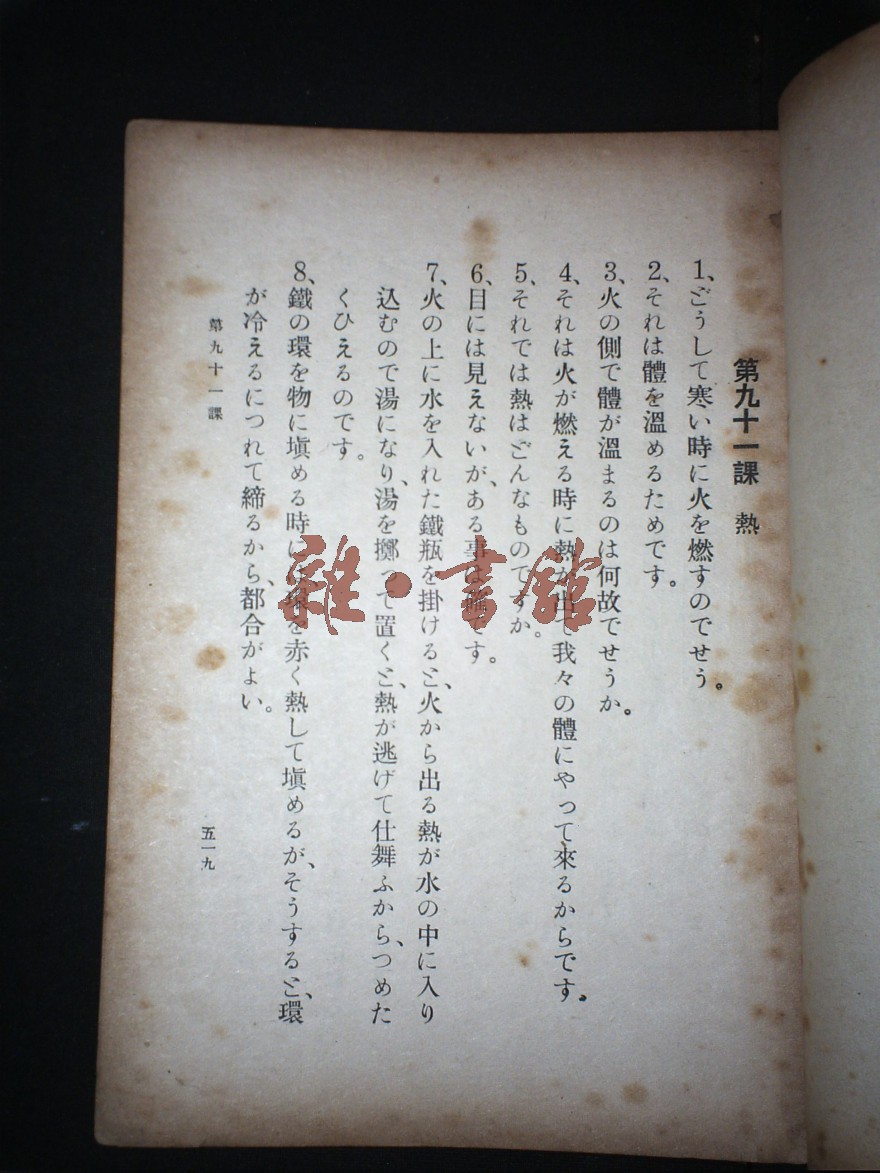 第九十一課 熱
1、どうして寒い時に火を燃すのでせう。
2、それは體を溫めるためです。
3、火の側で體が溫まるのは何故でせうか。
4、それは火が燃える時に熱が出て我々の體にやって來るからです。
5、それでは熱はどんなものですか。
6、目には見えないが、ある事は です。
7、火の上に水を入れた鐵瓶を掛けると、火から出る熱が水の中に入り
込むので湯になり、湯を擲って置くと、熱が逃げて仕舞ふから、つめた
くひえるのです。
8、鐵の環を物に塡める時に、環を赤く熱して塡めるが、そうすると、環
が冷えるにつれて締るから、都合がよい。
第九十一課
五一九
雜·書館